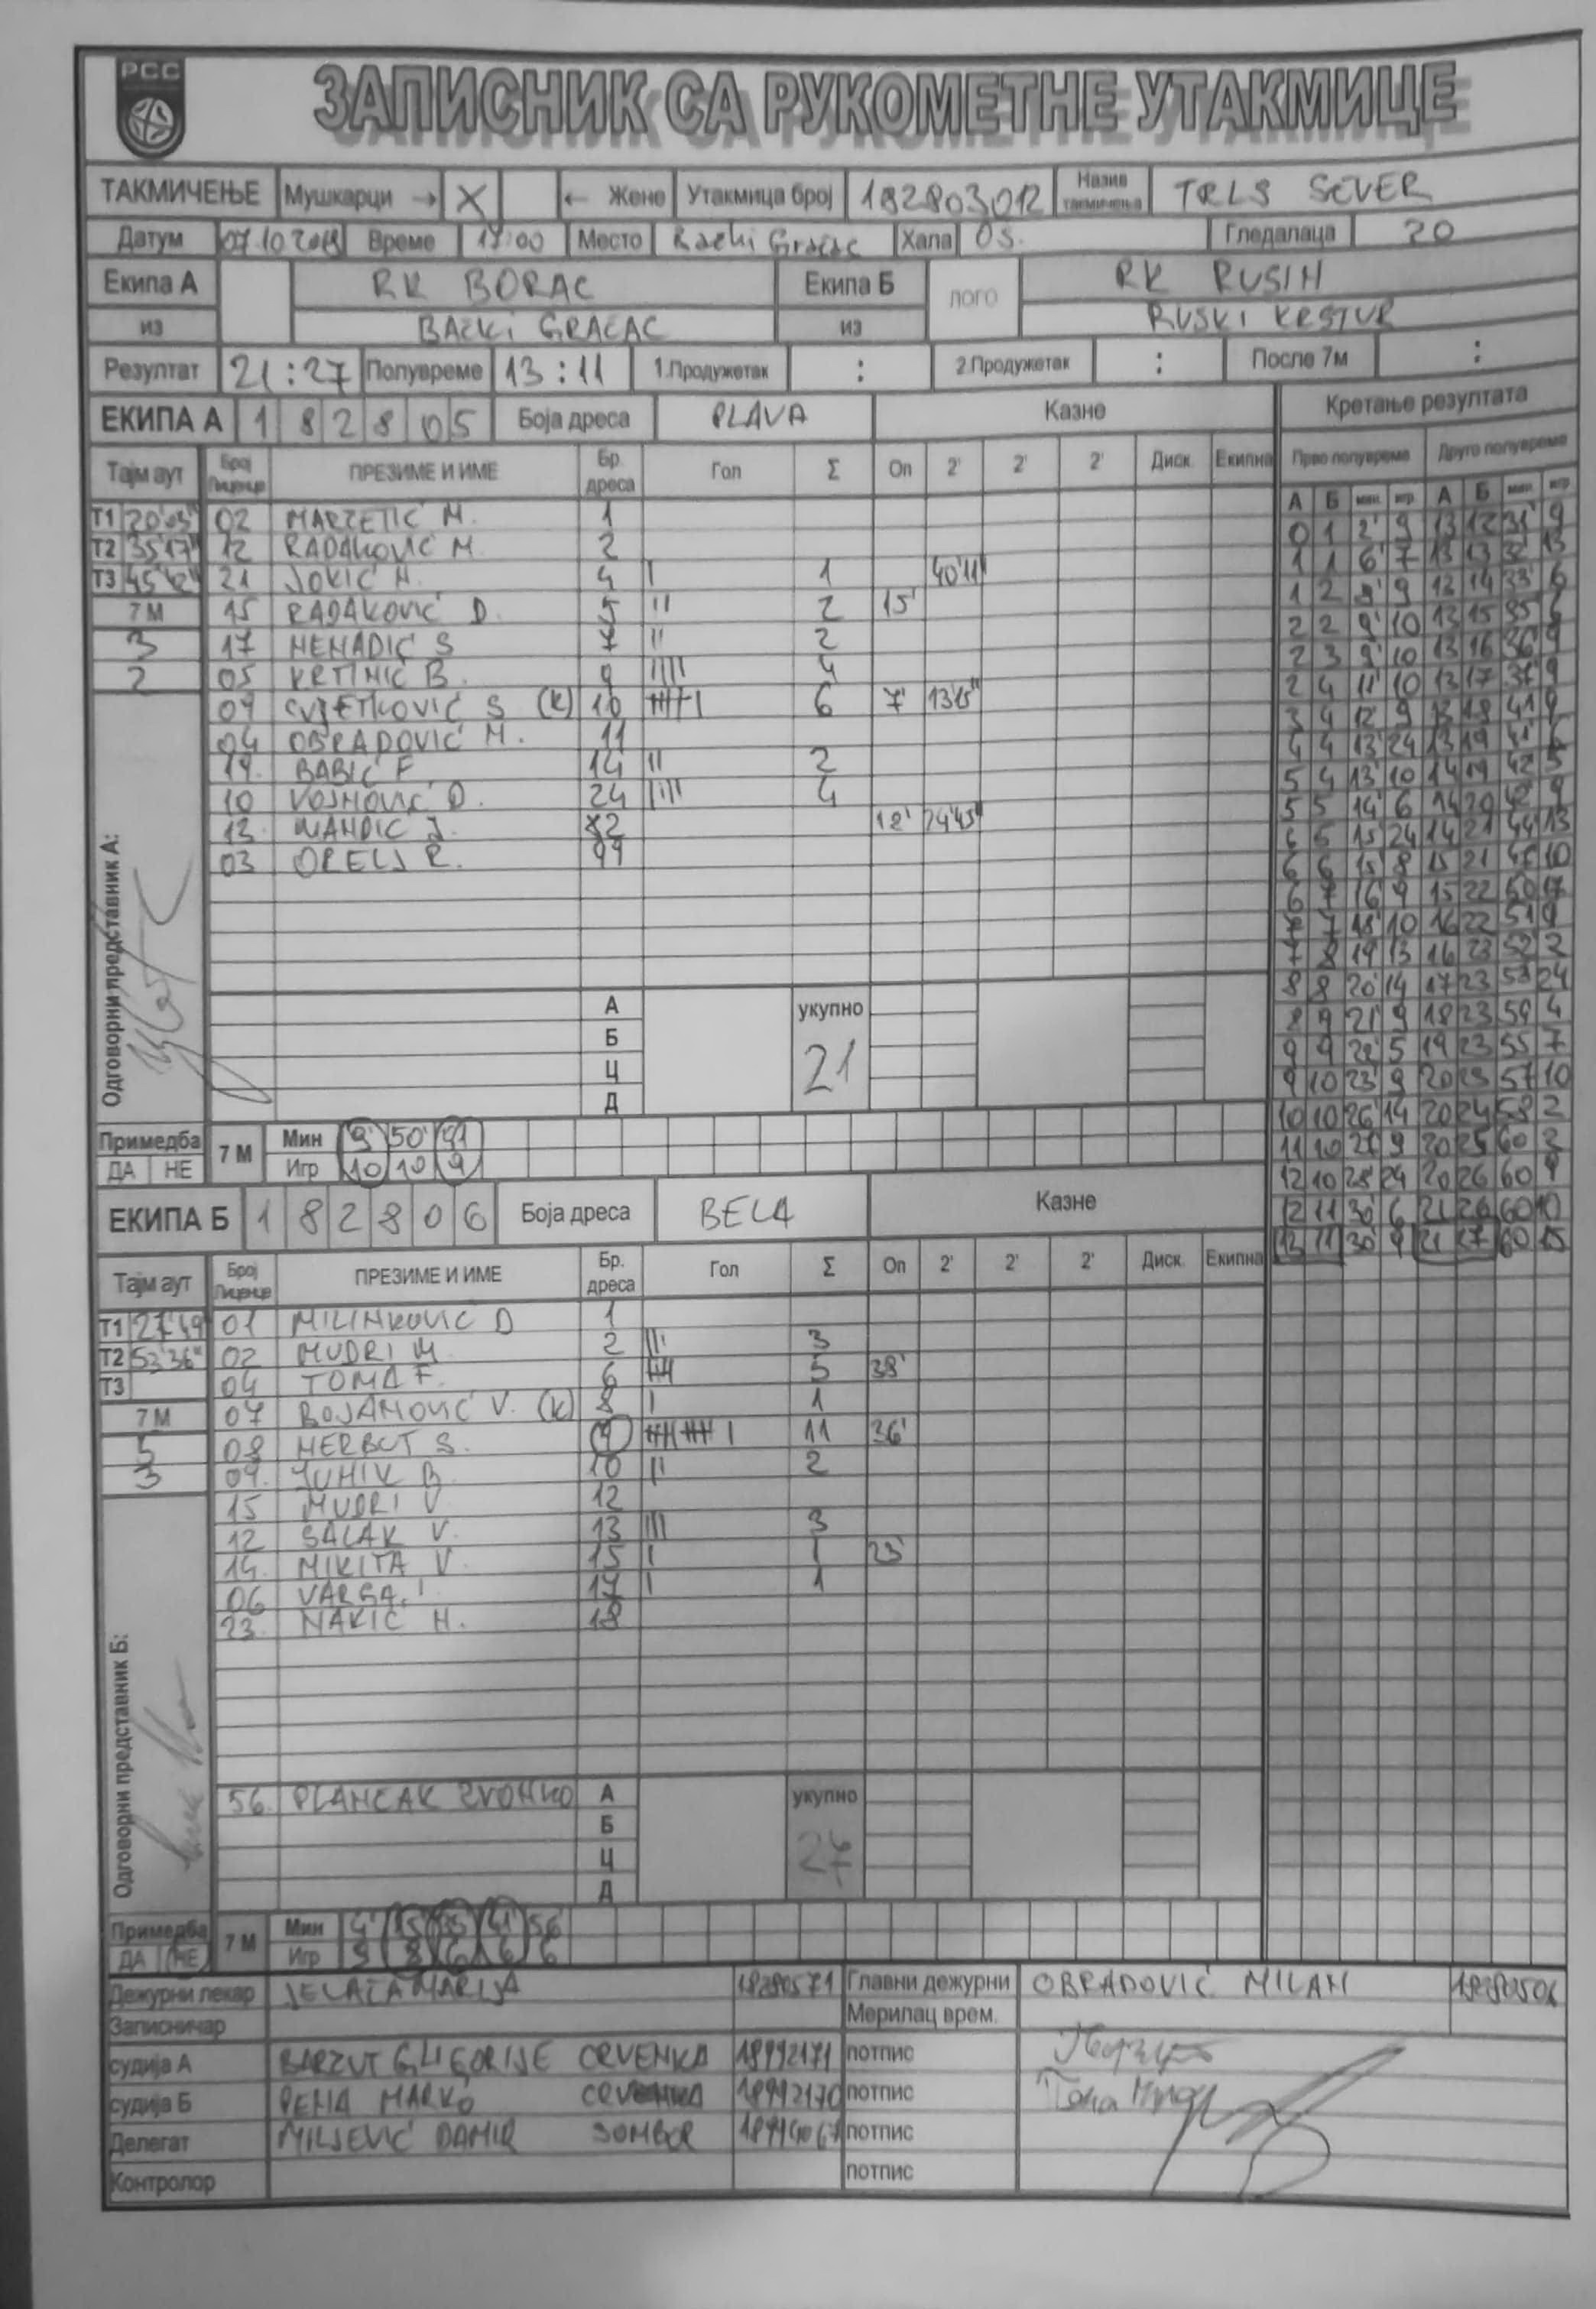 РСС
ЗАПИСНИК СА РУКОМЕТНЕ УТАКМИЦЕ
ТАКМИЧЕЊЕ Мушкарци → X ← Жене Утакмица број 182803012 Назив такмичења TRLS SEVER
Датум 07.10.2018 Време 17:00 Место Bački Gračac Хала OŠ. Гледалаца 20
Екипа А RK BORAC Екипа Б лого RK RUSIN
из BAČKI GRAČAC из RUSKI KRSTUR
Резултат 21:27 Полувреме 13:11 1.Продужетак : 2.Продужетак : После 7м :
ЕКИПА А 1 8 2 8 0 5 Боја дреса PLAVA Казне Кретање резултата
Тајм аут Број Лиценце ПРЕЗИМЕ И ИМЕ Бр. дреса Гол Σ Оп 2' 2' 2' Диск. Екипна Прво полувреме Друго полувреме
А Б мин. игр. А Б мин. игр.
T1 20'03" 02 MARZETIĆ M. 1
T2 35'17" 12 RADAKOVIĆ M. 2
T3 45'42" 21 JOKIĆ N. 4 I 1 40'11"
7 М 15 RADAKOVIĆ D. 5 II 2 15'
3 17 NENADIĆ S 7 II 2
2 05 KRTINIĆ B. 9 IIII 4
09 CVJETKOVIĆ S (K) 10 IIIII I 6 7' 13'15"
04 OBRADOVIĆ M. 11
19. BABIĆ F. 14 II 2
10 VOJNOVIĆ D. 24 IIII 4
13. MANDIĆ J. 82 12' 24'45"
03 ORELJ R. 99
0 1 2' 9 13 12 31' 9
1 1 6' 7 13 13 32' 13
1 2 8' 9 13 14 33' 6
2 2 9' 10 13 15 35' 6
2 3 9' 10 13 16 36' 9
2 4 11' 10 13 17 37' 9
3 4 12' 9 13 18 41' 9
4 4 13' 24 13 19 41' 6
5 4 13' 10 14 19 42' 5
5 5 14' 6 14 20 42' 9
6 5 15' 24 14 21 44' 13
6 6 15' 8 15 21 10
6 7 16' 9 15 22 50 17
7 7 18' 10 16 22 51 9
7 8 19' 13 16 23 52 2
8 8 20' 14 17 23 53 24
8 9 21' 9 18 23 54 4
9 9 22' 5 19 23 55 7
9 10 23' 9 20 23 57 10
10 10 26' 14 20 24 58 2
11 10 27' 9 20 25 60 2
12 10 28' 24 20 26 60 9
12 11 30' 6 21 26 60 10
13 11 30' 9 21 27 60 15
Одговорни представник А:
А укупно
Б 21
Ц
Д
Примедба 7 М Мин 9' 50'
ДА НЕ Игр 10 10 9
ЕКИПА Б 1 8 2 8 0 6 Боја дреса BELA Казне
Тајм аут Број Лиценце ПРЕЗИМЕ И ИМЕ Бр. дреса Гол Σ Оп 2' 2' 2' Диск. Екипна
T1 27'49 01 MILINKOVIĆ D 1
T2 53'36" 02 MUDRI M. 2 III 3
T3 04 TOMA F. 6 IIIII 5 38'
7 М 07 BOJANOVIĆ V. (K) 8 I 1
5 08 HERBUT S. 9 IIIII IIIII I 11 36'
3 09. JUHIK B. 10 II 2
15 MUDRI V 12
12 SALAK V. 13 III 3
14. MIKITA V. 15 I 1 23'
06 VARGA I 17 I 1
23. NAKIĆ N. 18
Одговорни представник Б:
56. PLANČAK ZVONKO А укупно
Б 27
Ц
Д
Примедба 7 М Мин 4' 15' 35' 41' 56'
ДА НЕ Игр 9 8 6 6 6
Дежурни лекар JELAČA MARIJA 18280571 Главни дежурни OBRADOVIĆ MILAN
Записничар Мерилац врем.
судија А BARZUT GLIGORIJE CRVENKA 18992171 потпис
судија Б PENA MARKO CRVENKA 18992170 потпис
Делегат MILJEVIĆ DAMIR SOMBOR потпис
Контролор потпис